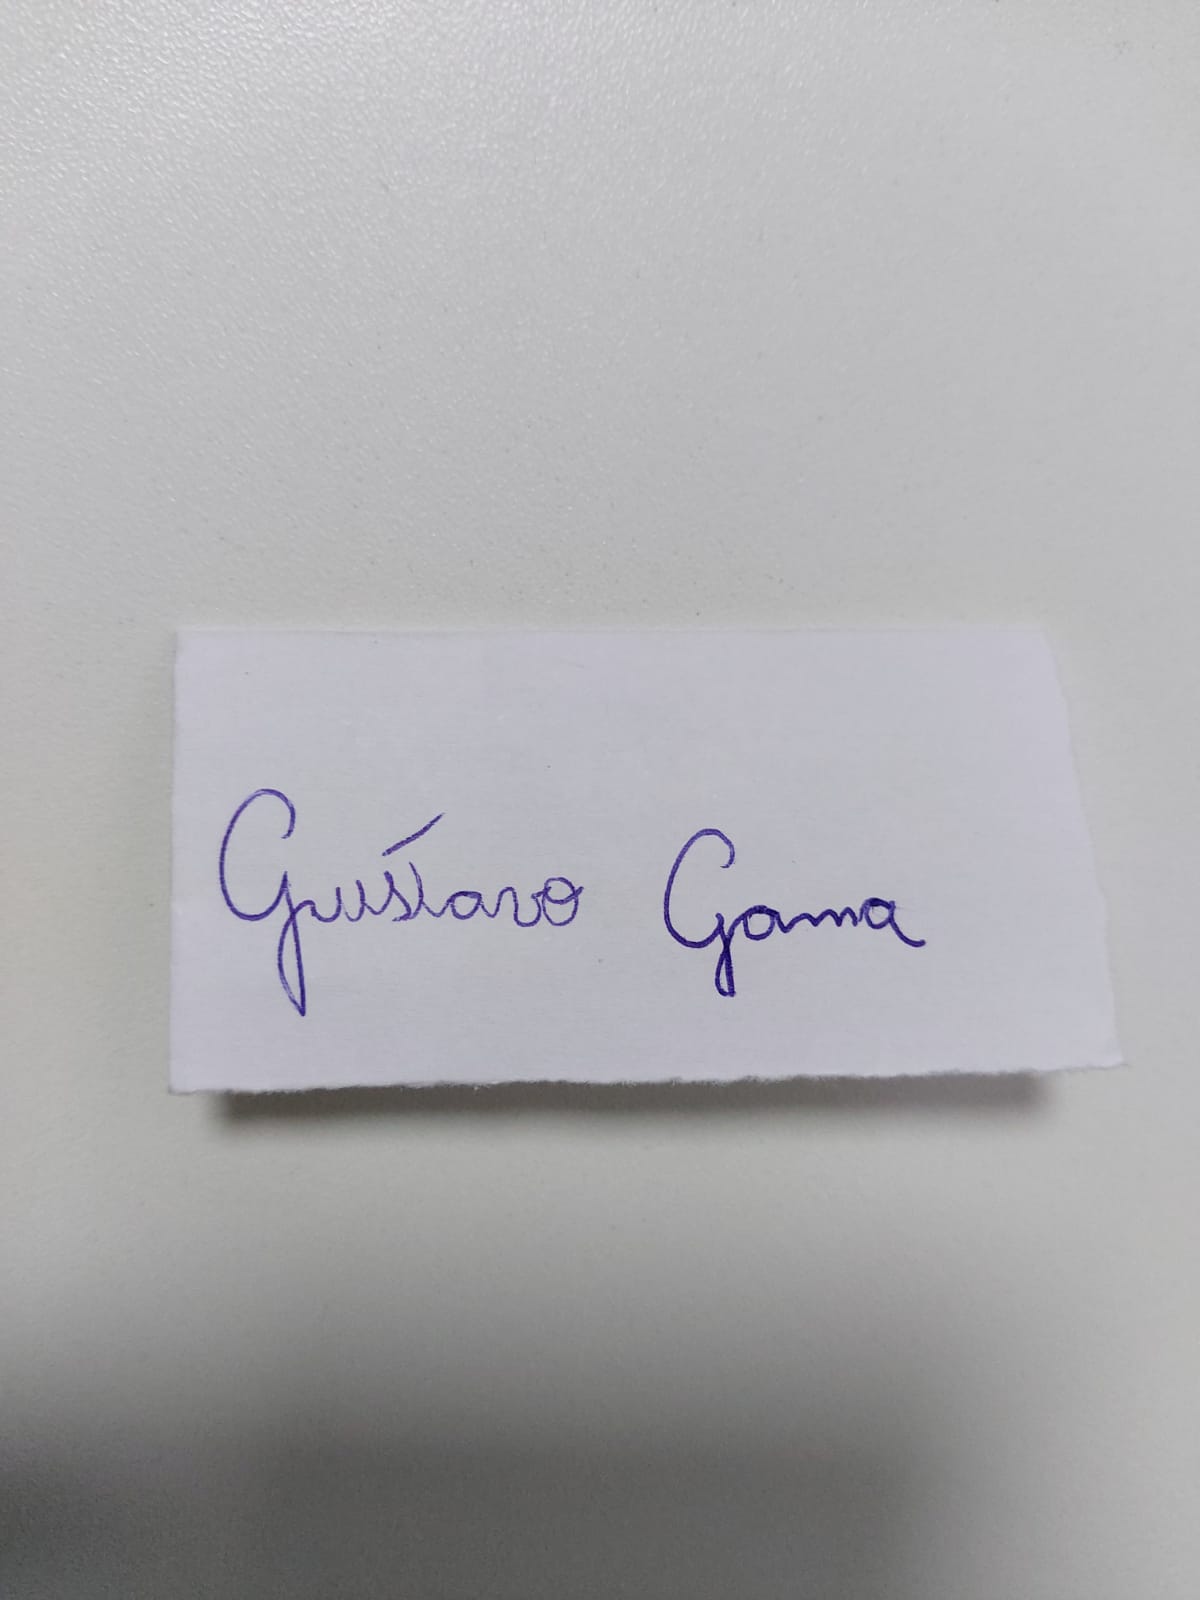 Gustavo Gama